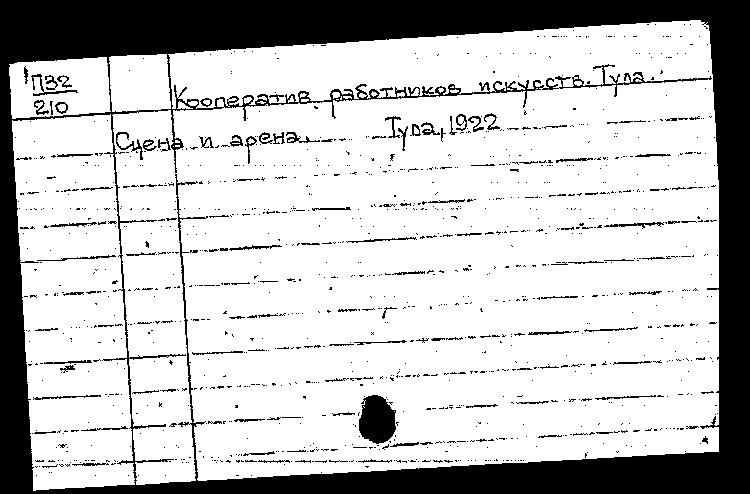 П32
210
Кооператив работников искусств. Тула.
Сцена и арена. Тула, 1922